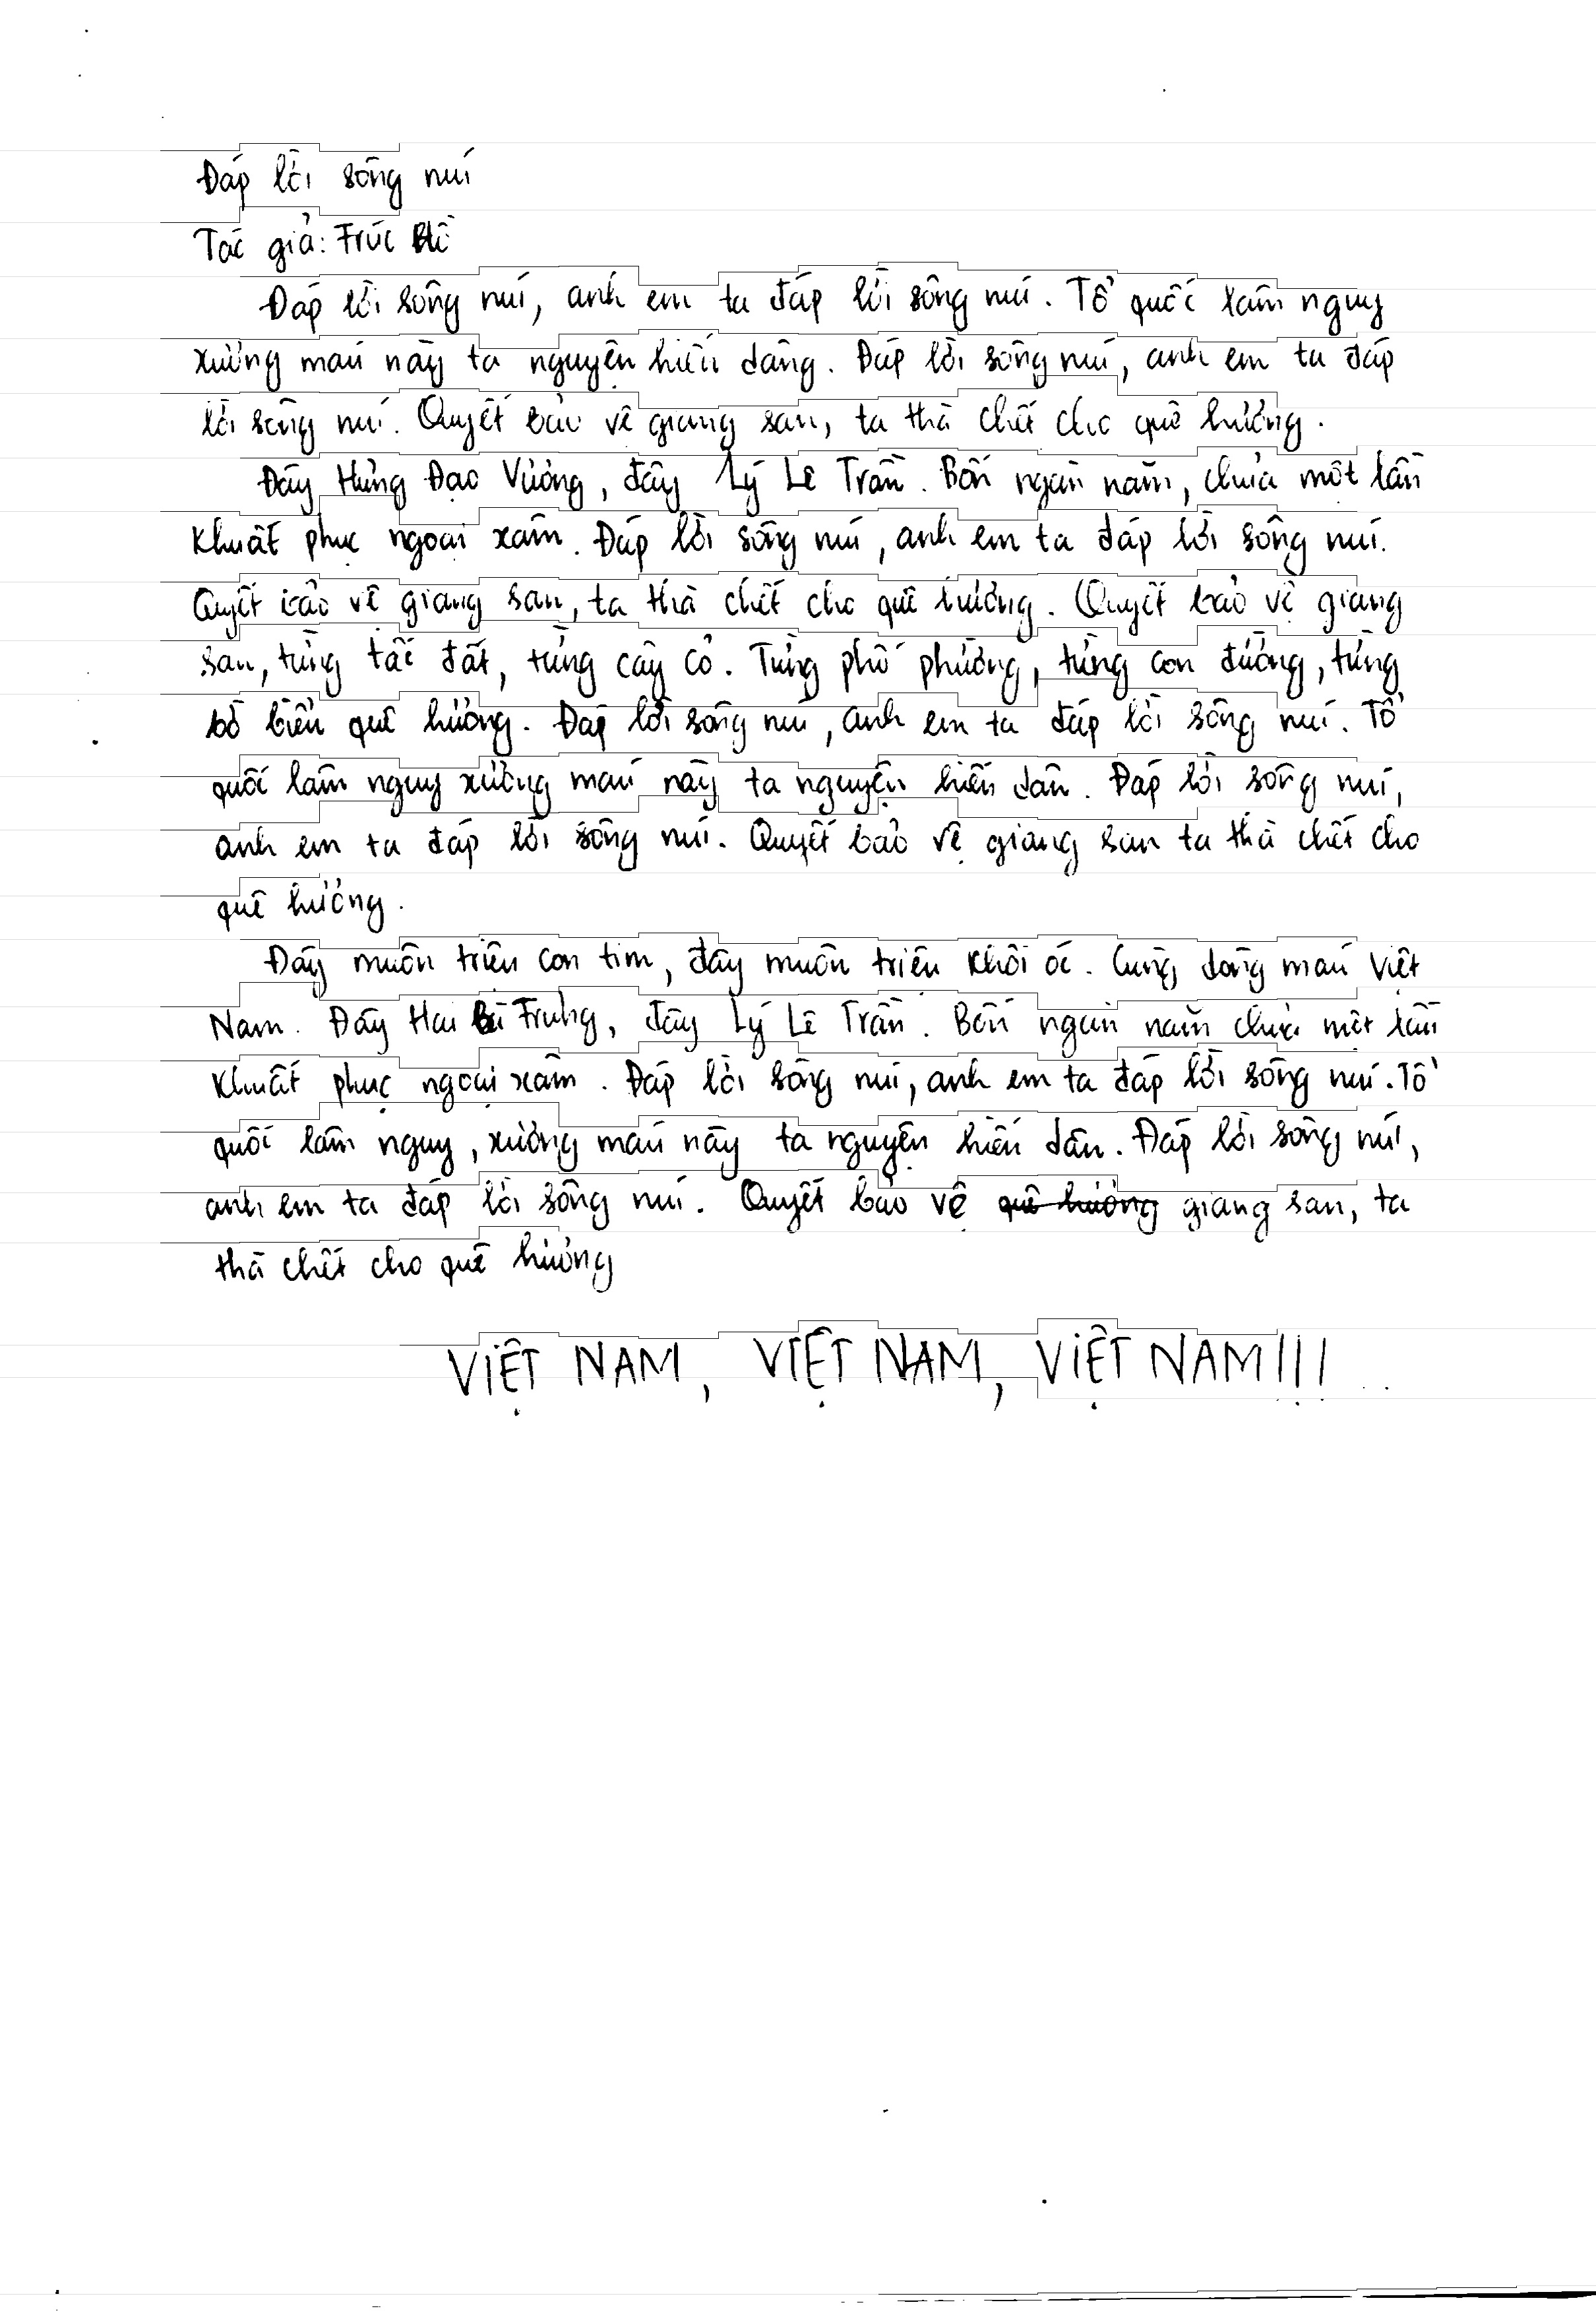 Đáp lời sông núi
Tác giả: Trúc Hồ
Đáp lời sông núi, anh em ta đáp lời sông núi. Tổ quốc lâm nguy
xương máu này ta nguyện hiến dâng. Đáp lời sông núi, anh em ta đáp
lời sông núi. Quyết bảo vệ giang san, ta thà chết cho quê hương.
Đây Hưng Đạo Vương, đây Lý Lê Trần. Bốn ngàn năm, chưa một lần
khuất phục ngoại xâm. Đáp lời sông núi, anh em ta đáp lời sông núi.
Quyết bảo vệ giang san, ta thà chết cho quê hương. Quyết bảo vệ giang
san, từng tấc đất, từng cây cỏ. Từng phố phường, từng con đường, từng
bờ biển quê hương. Đáp lời sông núi, anh em ta đáp lời sông núi. Tổ
quốc lâm nguy xương máu này ta nguyện hiến dân. Đáp lời sông núi,
anh em ta đáp lời sông núi. Quyết bảo vệ giang san ta thà chết cho
quê hương.
Đây muôn triệu con tim, đây muôn triệu khối óc. Cùng dòng máu Việt
Nam. Đây Hai Bà Trưng, đây Lý Lê Trần. Bốn ngàn năm chưa một lần
khuất phục ngoại xâm. Đáp lời sông núi, anh em ta đáp lời sông núi. Tổ
quốc lâm nguy, xương máu này ta nguyện hiến dân. Đáp lời sông núi,
anh em ta đáp lời sông núi. Quyết bảo vệ quê hương giang san, ta
thà chết cho quê hương
VIỆT NAM, VIỆT NAM, VIỆT NAM!!!